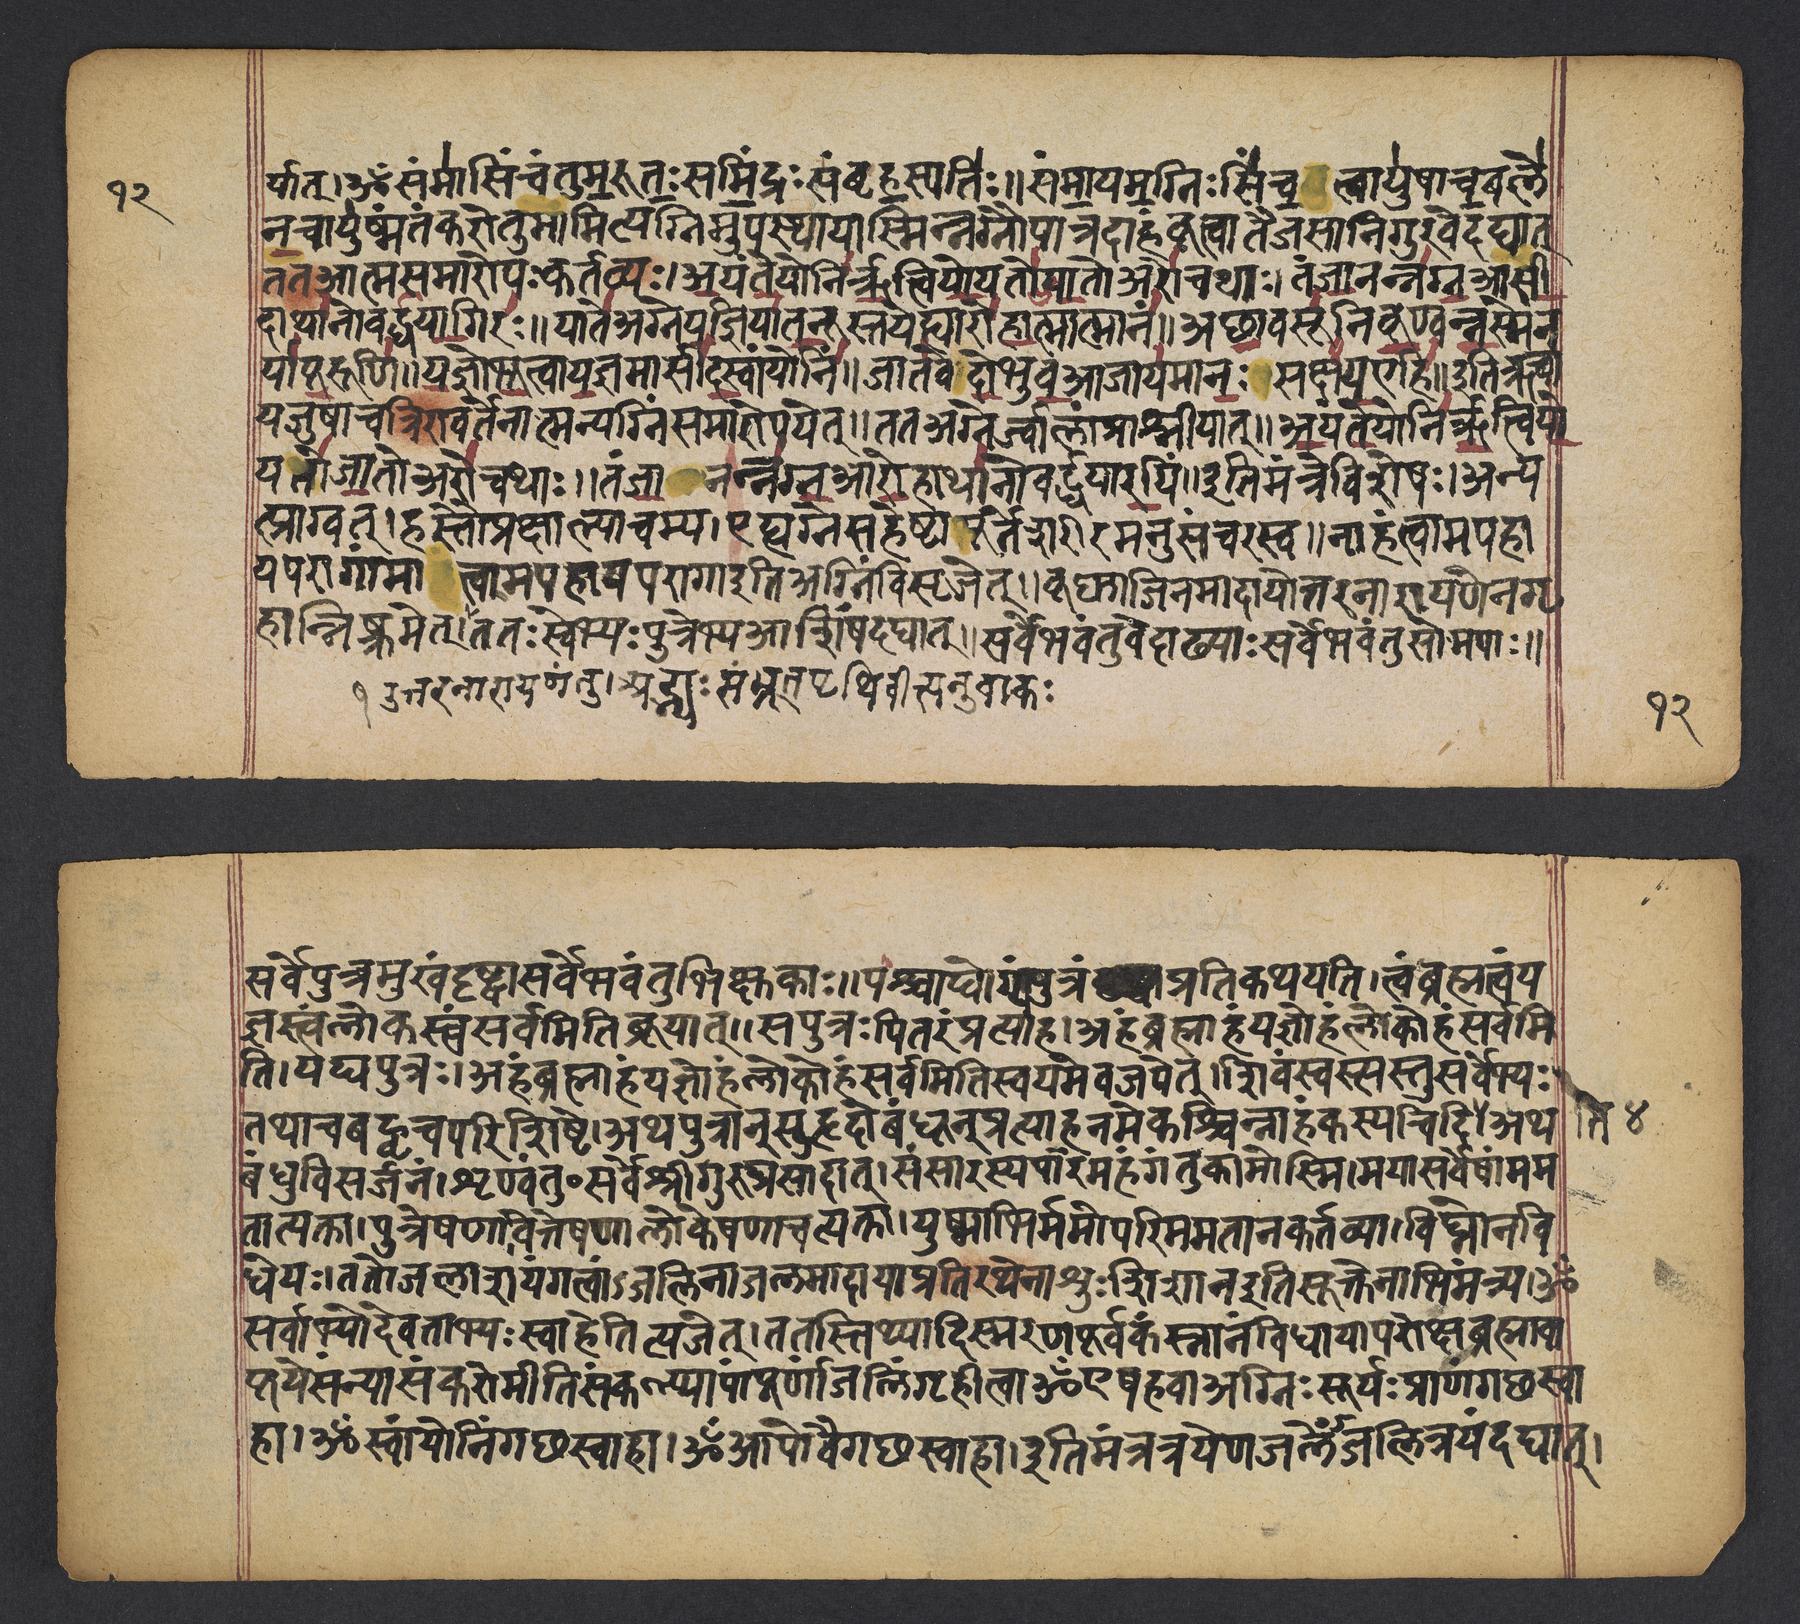 १२
र्यात्।ॐ संमासिंचंतुमरुतःसमिंद्रःसंबृहस्पतिः॥संमायमग्निःसिंच त्वायुषाचबले
नचायुष्मंतंकरोतुमामित्यग्निमुपस्थायास्मिन्नग्नौपात्रदाहंकृत्वातैजसानिगुरवेदद्यात्
ततआत्मसमारोपःकर्तव्यः।अयंतेयोनिर्ऋत्वियोयतोजातोअरोचथाः।तंजानन्नग्नआसी
दाथानोवर्द्धयागिरः॥यातेअग्नेयज्ञियातनूस्तयेह्यारोहात्मात्मानं॥अछावसूनिकृण्वन्नस्मेन
र्यापुरूणि॥यज्ञोभूत्वायज्ञमासीदस्वांयोनिं॥जातवेदोभुवआजायमानः सक्षयएहि॥इतिऋचा
यजुषाचत्रिरावर्तेनात्मन्यग्निंसमारोपयेत्॥ततअग्नेर्ज्वालांप्राश्नीयात्॥अयंतेयोनिर्ऋत्वियो
यतोजातोअरोचथाः॥तंजा नन्नग्नआरोहाथानोवर्द्धयारयिं॥इतिमंत्रेविशेषः।अन्य
त्प्राग्वत्।हस्तौप्रक्षाल्याचम्य।एह्यग्नेसहेष्टापूर्तेशरीरमनुसंचरस्व॥नाहंत्वामपहा
यपरागांमा त्वामपहायपरागाइतिअग्निंविसृजेत्॥कृष्णाजिनमादायोत्तरनारायणेनगृ
हान्निष्क्रमेत्।ततःस्वेभ्यःपुत्रेभ्यआशिषंदद्यात्॥सर्वेभवंतुवेदाढ्याःसर्वेभवंतुसोमपाः॥
१ उत्तरनारायणंतु।अद्भ्यःसंभूतपृथिवीत्यनुवाकः
१२
सर्वेपुत्रमुखंदृष्ट्वासर्वेभवंतुभिक्षुकाः॥पश्चाद्योग्यंपुत्रं प्रतिकथयति।त्वंब्रह्मत्वंय
ज्ञस्त्वंलोकस्त्वंसर्वमितिब्रूयात्॥सपुत्रःपितरंप्रत्याह।अहंब्रह्माहंयज्ञोहंलोकोहंसर्वमि
ति।यद्यपुत्रः।अहंब्रह्माहंयज्ञोहंलोकोहंसर्वमितिस्वयमेवजपेत्।शिवंस्वस्त्यस्तुसर्वेभ्यः
तथाचबह्वृचपरिशिष्टे।अथपुत्रान्सुहृदोबंधून्प्रत्याहनमेकश्चिन्नाहंकस्यचिदि।अथ
ति ४
बंधुविसर्जनं।शृण्वंतु॰सर्वेश्रीगुरुप्रसादात्।संसारस्यपारमहंगंतुकामोस्मि।मयासर्वेषांमम
तात्यक्ता।पुत्रेषणावित्तेषणालोकेषणाचत्यक्ता।युष्माभिर्ममोपरिममतानकर्तव्या।विघ्नोनवि
धेयः।ततोजलाशयंगत्वांजलिनाजलमादायाप्रतिरथेनाशुःशिशानइतिसूक्तेनाभिमंत्र्य।ॐ
सर्वाभ्योदेवताभ्यःस्वाहेतित्यजेत्।ततस्तिथ्यादिस्मरणपूर्वकंस्नानंविधायापरोक्षब्रह्मावा
प्तयेसंन्यासंकरोमीतिसंकल्प्यापांपूर्णांजलिंगृहीत्वाॐएषहवाअग्निःसूर्यःप्राणंगछस्वा
हा।ॐस्वांयोनिंगछस्वाहा।ॐआपोवैगछस्वाहा।इतिमंत्रत्रयेणजलेंजलित्रयंदद्यात्।